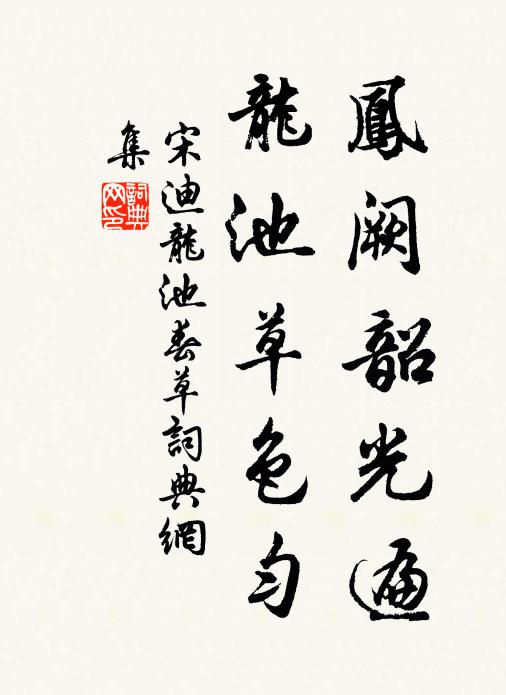 鳳闕韶光遍
龍池草色勻
宋迪龍池春草詞典網
集
詞典網印